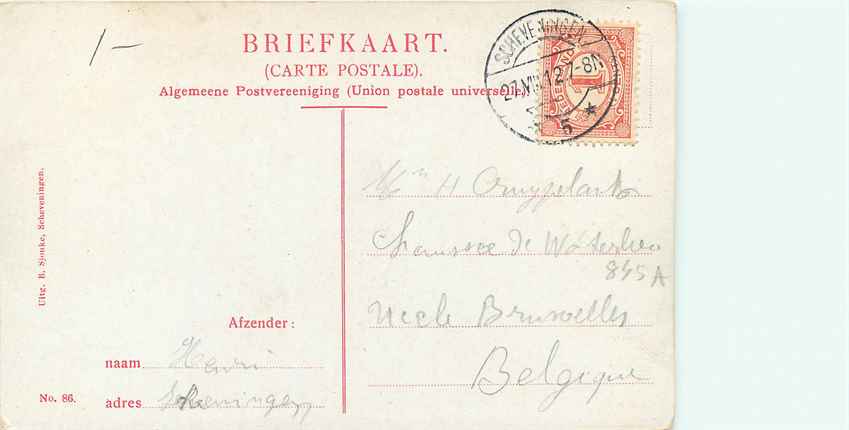 1/-
BRIEFKAART.
(CARTE POSTALE).
Algemeene Postvereeniging (Union postale universelle)
SCHEVENINGEN
27.VIII.12.7-8N
5
NEDERLAND
1
H
Chaussee de Waterloo
845A
Uccle Bruxelles
Belgique
Uitg. B. Sjouke, Scheveningen.
Afzender:
naam Henri
adres Scheveningen
No. 86.